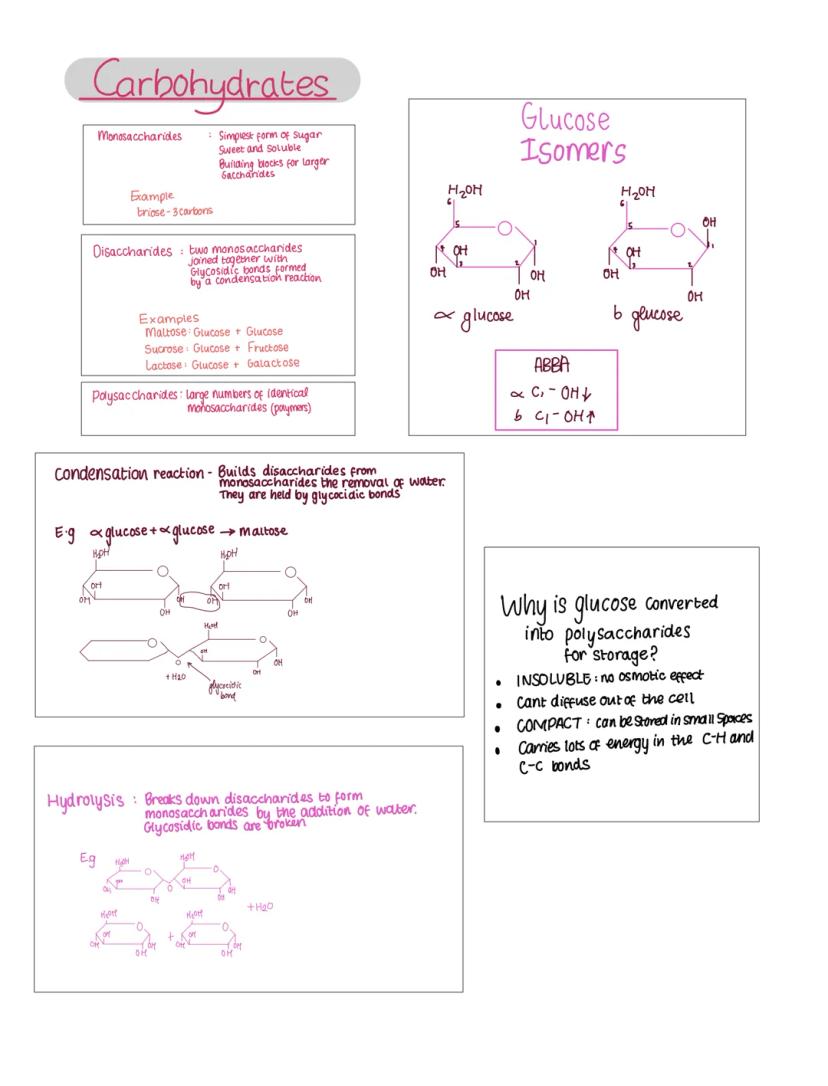 Carbohydrates
Monosaccharides : Simplest form of Sugar
Sweet and Soluble
Building blocks for larger
Saccharides
Example
triose - 3 carbons
Disaccharides : two monosaccharides
joined together with
Glycosidic bonds formed
by a condensation reaction
Examples
Maltose: Glucose + Glucose
Sucrose: Glucose + Fructose
Lactose: Glucose + Galactose
Polysaccharides: Large numbers of identical
monosaccharides (polymers)
Glucose
Isomers
H₂OH
6
5
4 OH
3
1
OH
2
OH
OH
α glucose
H₂OH
6
5
OH
4 OH
3
1
OH
2
OH
b glucose
ABBA
α C₁ - OH↓
b C₁ - OH↑
Condensation reaction - Builds disaccharides from
monosaccharides the removal of water.
They are held by glycocidic bonds
E.g α glucose + α glucose → maltose
H₂OH H₂OH
OH OH
OH OH OH OH
OH OH
H₂OH
O OH
O OH
+ H2O OH
glycocidic
bond
Why is glucose converted
into polysaccharides
for storage?
• INSOLUBLE: no osmotic effect
• Cant diffuse out of the cell
• COMPACT: can be Stored in small Spaces
• Carries lots of energy in the C-H and
C-C bonds
Hydrolysis : Breaks down disaccharides to form
monosaccharides by the addition of water.
Glycosidic bonds are broken
E.g
H₂OH H₂OH
O O
OH
OH O OH
OH OH
+ H2O
H₂OH H₂OH
O O
OH + OH
OH OH OH OH
OH OH